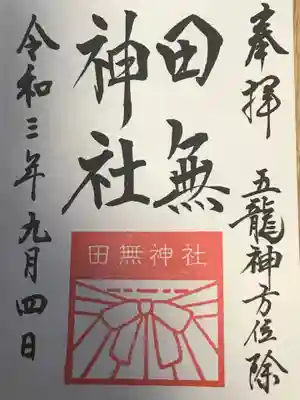 奉拝 五龍神方位除
田無
神社
田無神社
令和三年九月四日